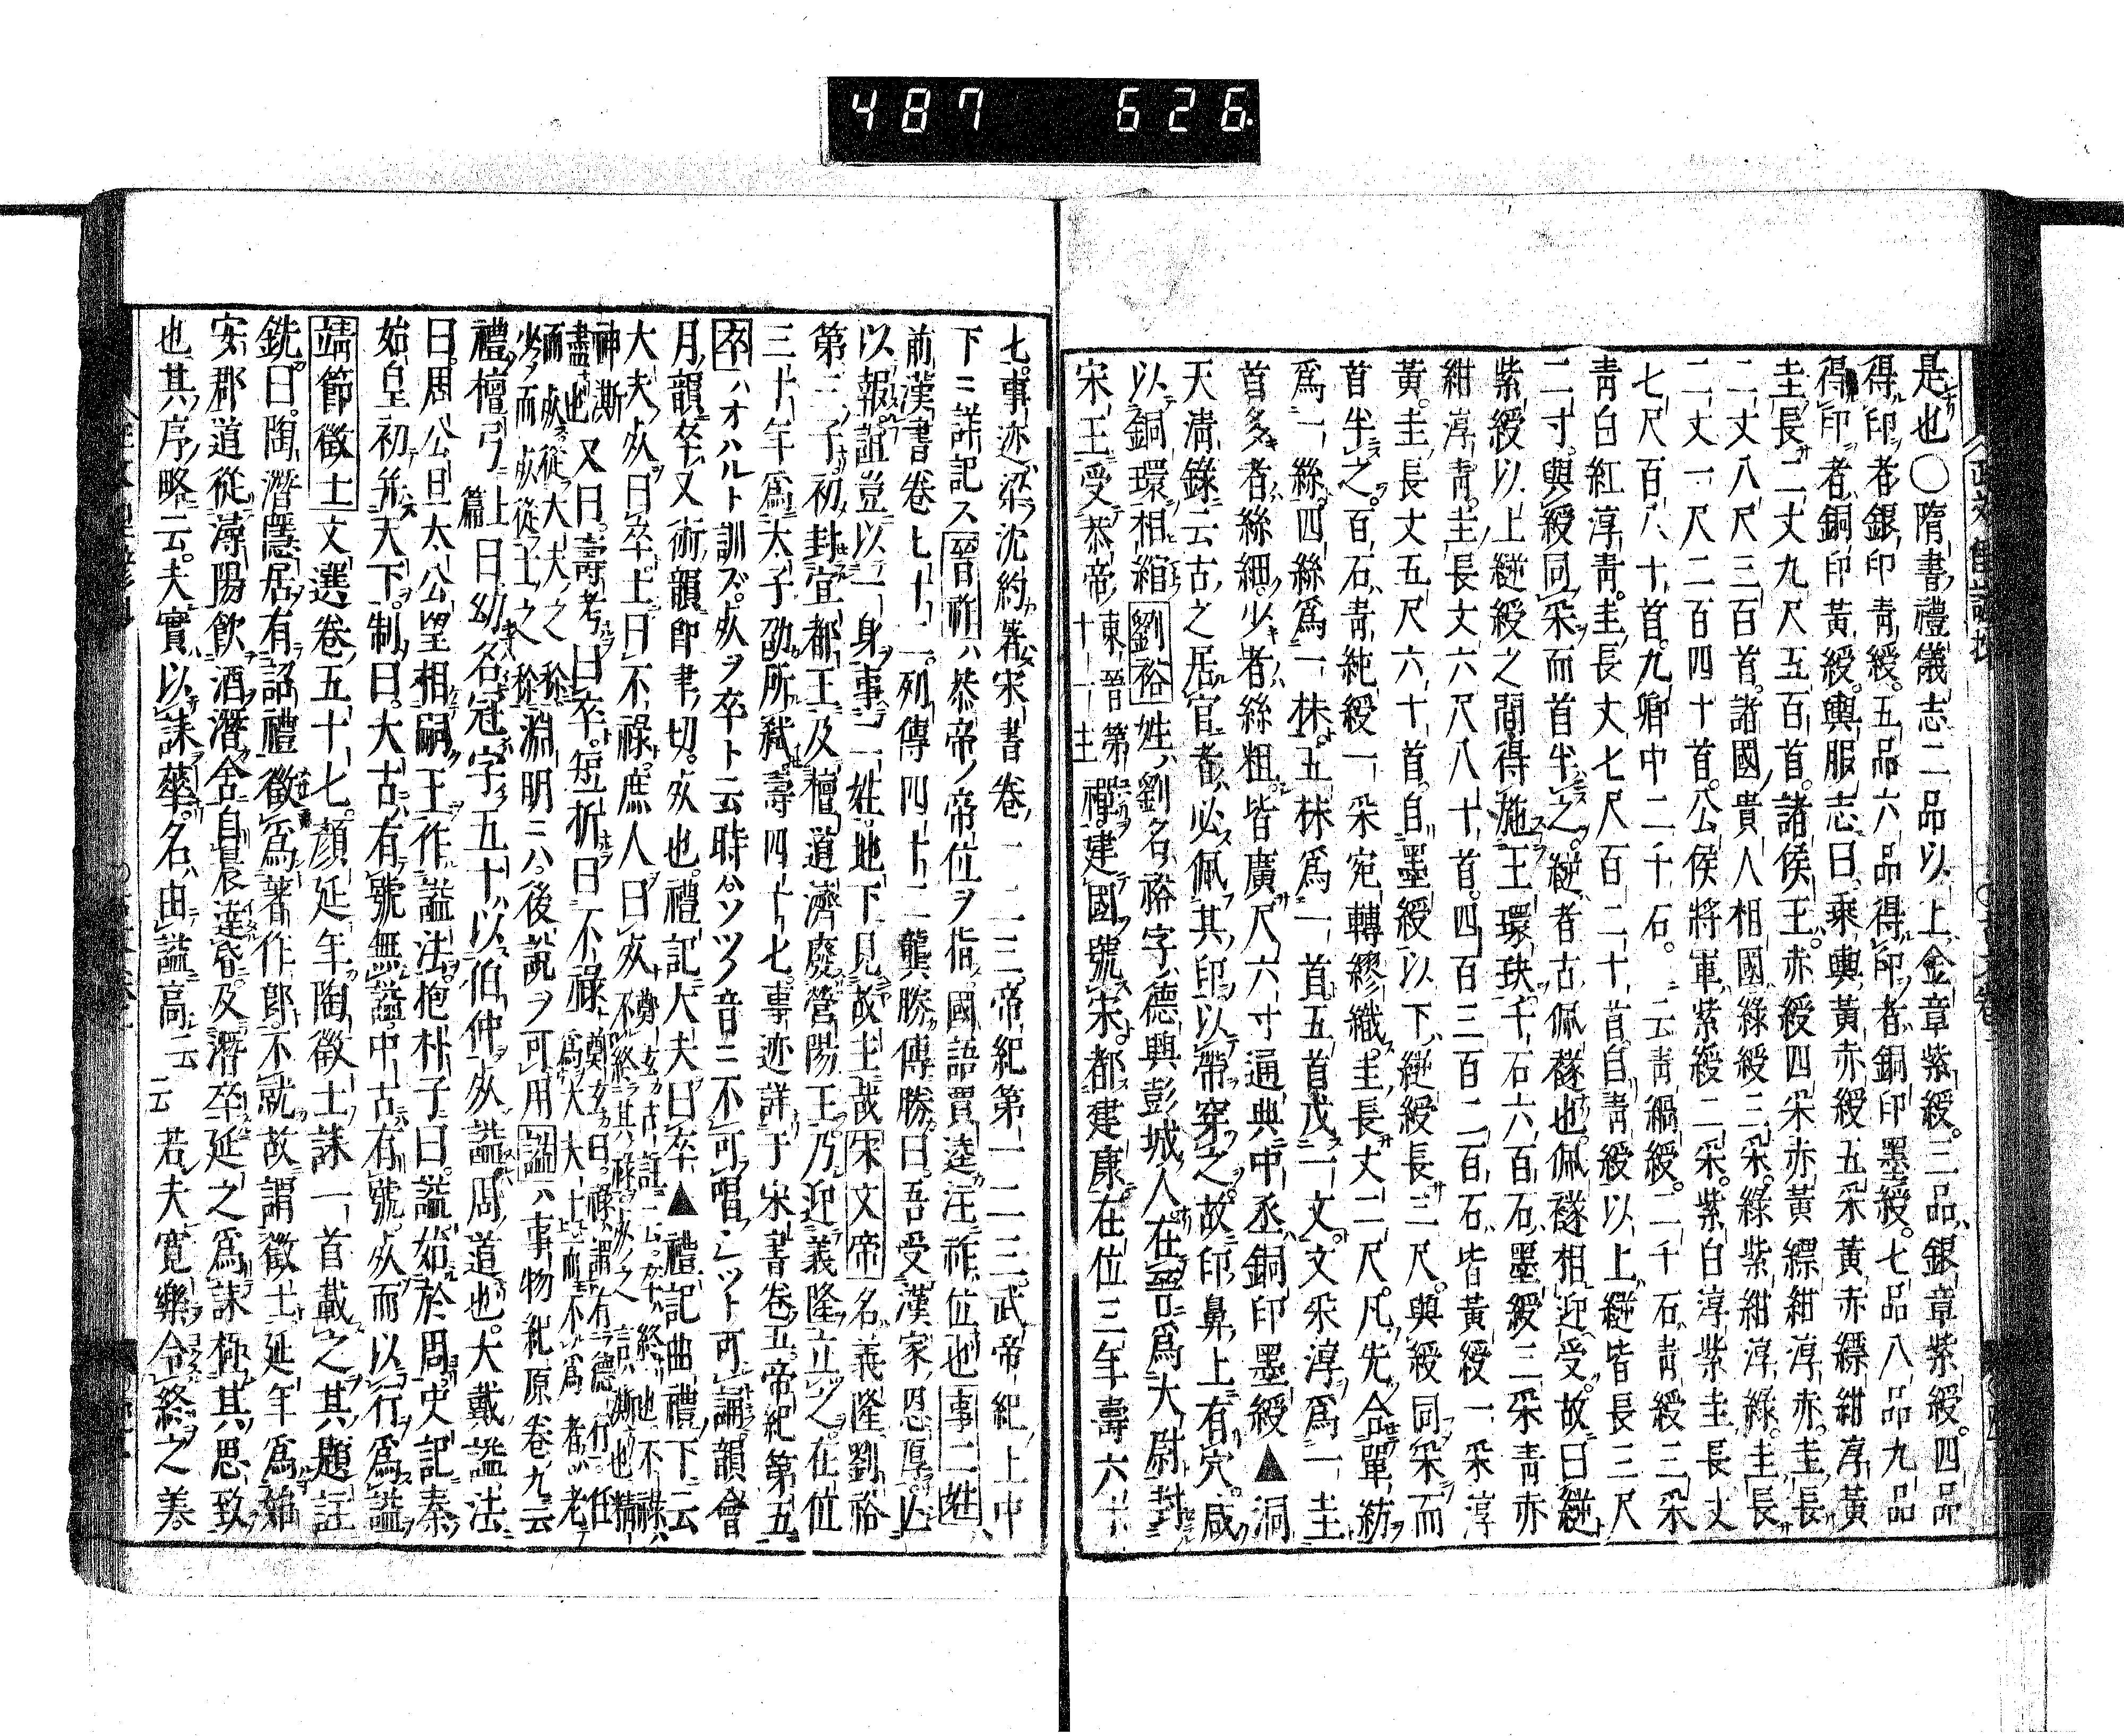 487 626
是也○隋書禮儀志二品以上金章紫綬三品銀章紫綬四品
得印者銀印青綬五品六品得印者銅印墨綬七品八品九品
得印者銅印黃綬輿服志曰乘輿黃赤綬五采黃赤縹紺淳黃
圭長二丈九尺五百首諸侯王赤綬四采赤黃縹紺淳赤圭長
二丈八尺三百首諸國貴人相國綠綬三采綠紫紺淳綠圭長
二丈一尺二百四十首公侯將軍紫綬二采紫白淳紫圭長丈
七尺百八十首九卿中二千石一云青緺綬二千石青綬三采
青白紅淳青圭長丈七尺百二十首自青綬以上縌皆長三尺
二寸與綬同采而首半之縌者古佩襚也佩襚相迎受故曰縌
紫綬以上縌綬之間得施玉環玦千石六百石墨綬三采青赤
紺淳青圭長丈六尺八十首四百三百二百石皆黃綬一采淳
黃圭長丈五尺六十首自墨綬以下縌綬長三尺與綬同采而
首半之百石青純綬一采宛轉繆織圭長丈二尺凡先合單紡
爲一絲四絲爲一株五株爲一首五首成一文文采淳爲一圭
首多者絲細少者絲粗皆廣尺六寸通典中丞銅印墨綬▲洞
天清錄云古之居官者必佩其印以帶穿之故印鼻上有穴咸
以銅環相綰劉裕姓劉名裕字德輿彭城人在晉爲大尉封
宋王受恭帝東晉第十一主禪建國號宋都建康在位三年壽六十
七事迹梁沈約著宋書卷一二三帝紀第一二三武帝紀上中
下ニ詳記ス晉祚ハ恭帝ノ帝位ヲ指國語賈逵注祚位也事二姓
前漢書卷七十二列傳四十二龔勝傳勝曰吾受漢家恩厚亡
以報誼豈以一身事二姓地下見故主哉宋文帝名義隆劉裕
第三子初封宜都王及檀道濟廢營陽王乃迎義隆立之在位
三十年爲太子劭所弑壽四十七事迹詳于宋書卷五帝紀第五
卒ハオハルト訓ズ死ヲ卒ト云時ハソツノ音ニ不可唱シツト可誦韻會
月韻卒又術韻卽聿切死也禮記大夫曰卒▲禮記曲禮下云
大夫死曰卒士曰不祿庶人曰死鄭玄カ古註ニ云卒ハ終也不祿ハ不終其祿死之言澌也精
神澌盡也又曰壽考曰卒短折曰不祿鄭玄曰祿謂有德行任爲大夫士而不爲者老
而死從大夫之稱少而死從士之稱淵明ニハ後說ヲ可用諡ハ事物紀原卷九云
禮檀弓上篇曰幼名冠字五十以伯仲死諡周道也大戴諡法
曰周公旦太公望相嗣王作諡法抱朴子曰諡始於周史記秦
始皇初并天下制曰大古有號無諡中古有號死而以行爲諡
靖節徵士文選卷五十七顏延年陶徵士誄一首載之其題註
銑曰陶潛隱居有詔禮徵爲著作郎不就故謂徵士延年爲始
安郡道從潯陽飲酒潛舍自晨達昏及潛卒延之爲誄極其思致
也其序略云夫實以誄華名由諡高云云若夫寬樂令終之美